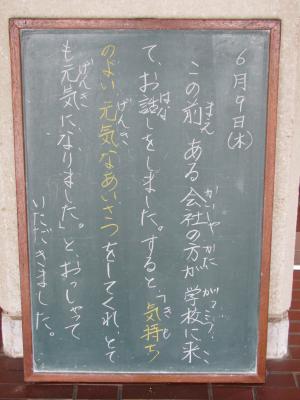 6月9日(木)
この前、ある会社の方が学校に来
て、お話しをしました。すると、「気持ち
のよい元気なあいさつをしてくれ、とて
も元気になりました。」と、おっしゃって
いただきました。